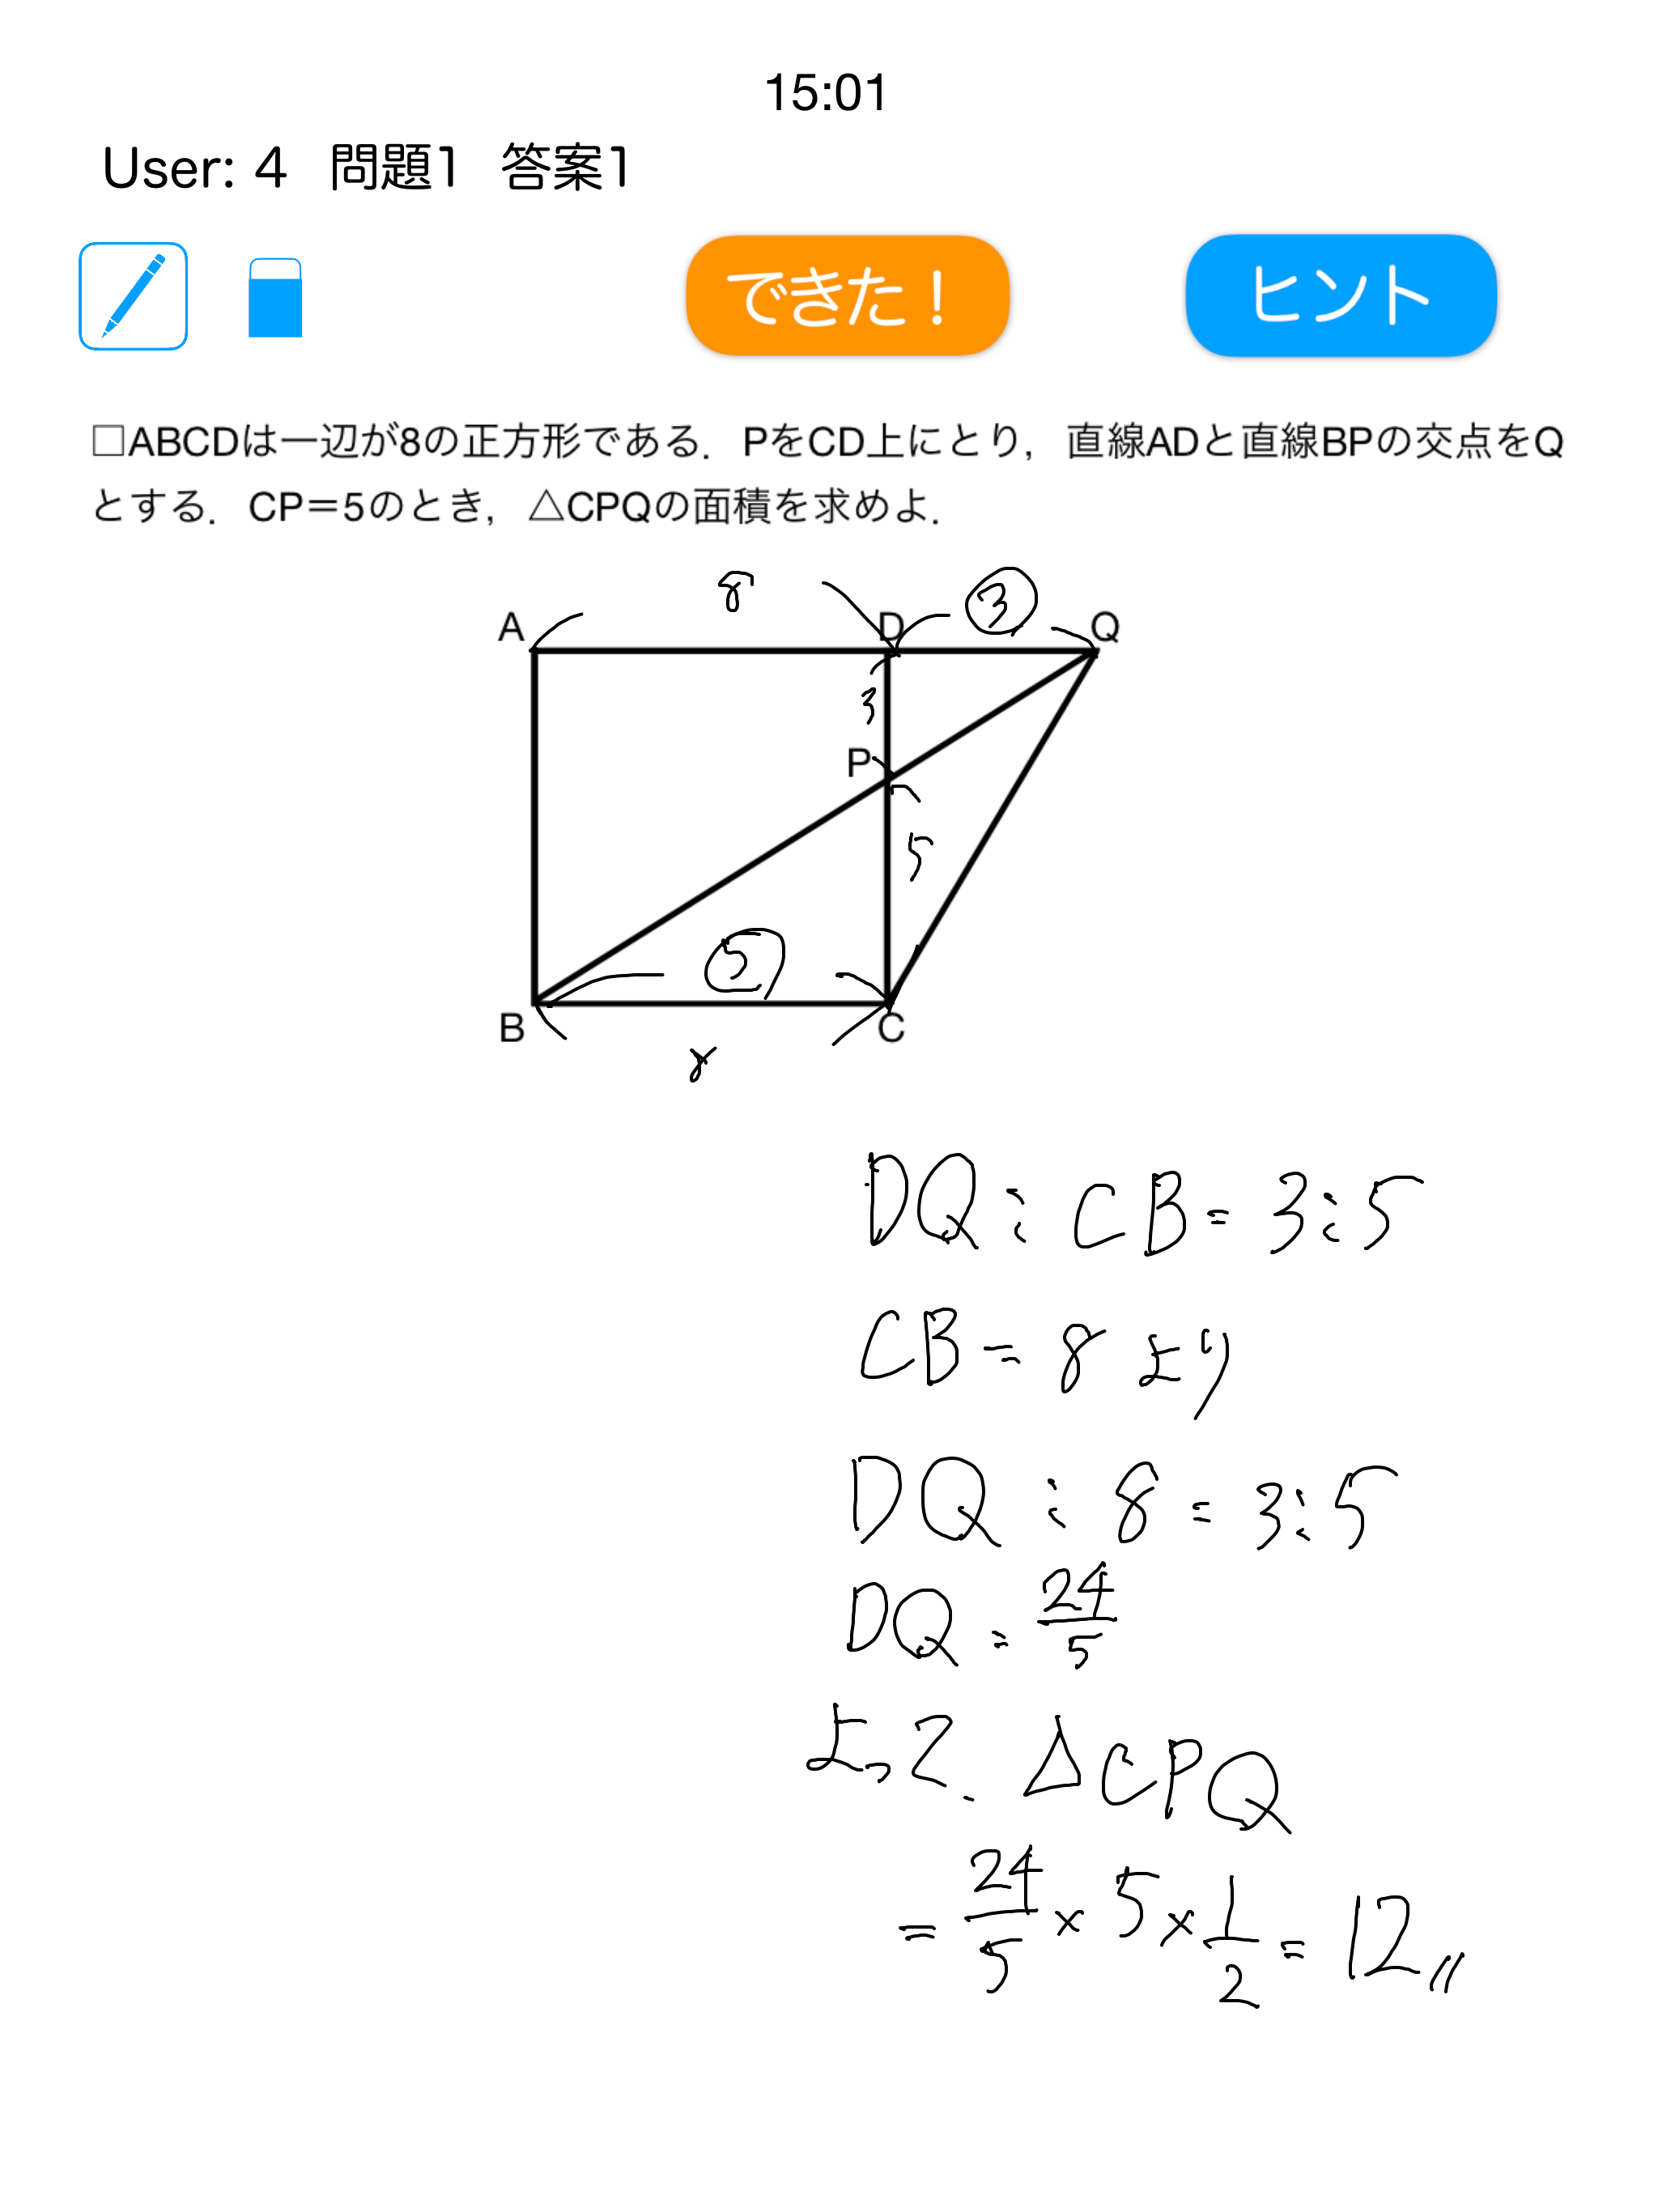 15:01
User: 4 問題1 答案1
できた！ ヒント
□ABCDは一辺が8の正方形である．PをCD上にとり，直線ADと直線BPの交点をQ
とする．CP＝5のとき，△CPQの面積を求めよ．
8
③
A D Q
3
P
5
⑤
B C
8
DQ:CB=3:5
CB=8より
DQ:8=3:5
DQ=24/5
よって、△CPQ
=24/5×5×1/2=12〃